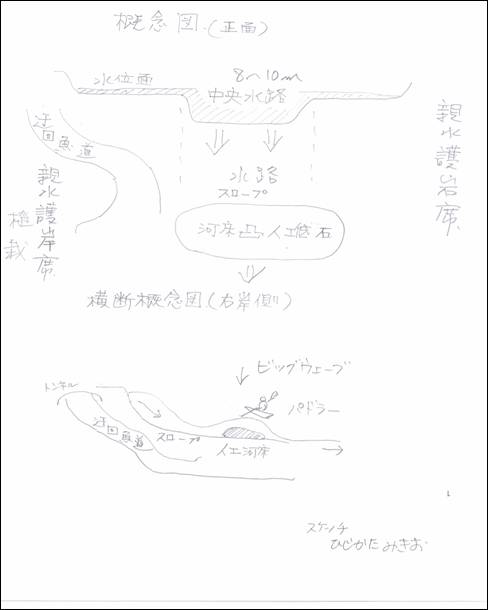 概念図(正面)
水位面
8~10m
中央水路
迂回魚道
親水護岸席
植栽
水路
スロープ
河床凸人工底石
親水護岩席
横断概念図(右岸側)
ビッグウェーブ
パドラー
トンネル
迂回魚道
スロープ
人工河床
スケッチ
ひじかたみきお